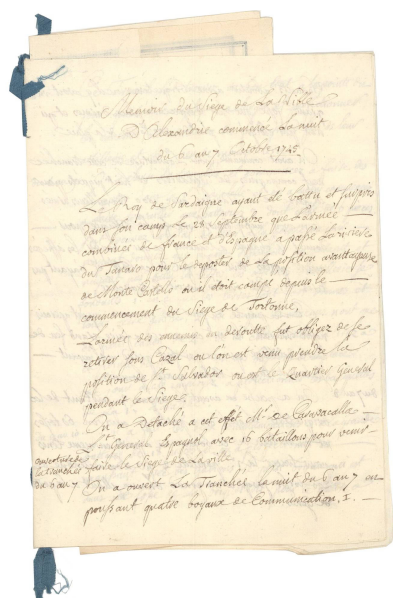 Memoire du Siege de La Ville
D'Alexandrie commencé La nuit
du 6 au 7 Octobre 1745
Le Roy de Sardaigne ayant été battu et surpris
dans son camp Le 28 Septembre que L'armée
combinée de france et d'Espagne a passé La riviere
du Tanaro pour le deposter de La position avantageuse
de Monte Castello ou il etoit campé depuis le
commencement du Siege de Tortonne,
L'armée des ennemis en deroutte fut obligée de se
retirer sous Cazal ou l'on est venu prendre La
position de St Salvador ou est le Quartier General
pendant le Siege.
On a Detaché a cet effet Mr. de
Lt General Espagnol avec 16 bataillons pour venir
ouverture de
la tranchée
du 6 au 7
faire le Siege de La ville
On a ouvert La Tranchée la nuit du 6 au 7 en
poussant quatre boyaux de Communication, 1.